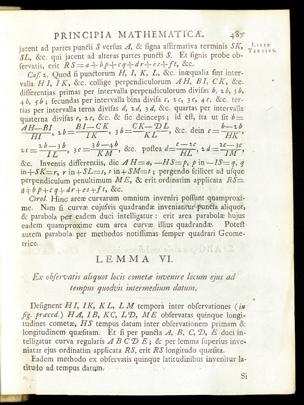 PRINCIPIA MATHEMATICA. 487
LIBER
TERTIUS.
jacent ad partes puncti S versus A, & signa affirmativa terminis SK,
SL, &c. qui jacent ad alteras partes puncti S. Et signis probe ob-
servatis, erit RS=a+bp+cq+dr+es+ft, &c.
Cas. 2. Quod si punctorum H, I, K, L, &c. inæqualia sint inter-
valla HI, IK, &c. collige perpendiculorum AH, BI, CK, &c.
differentias primas per intervalla perpendiculorum divisas b, 2b, 3b,
4b, 5b; secundas per intervalla bina divisas c, 2c, 3c, 4c, &c. ter-
tias per intervalla terna divisas d, 2d, 3d, &c. quartas per intervalla
quaterna divisas e, 2e, &c. & sic deinceps; id est, ita ut sit b=
AH—BI/HI, 2b=BI—CK/IK, 3b=CK—DL/KL, &c. dein c=b—2b/HK,
2c=2b—3b/IL, 3c=3b—4b/KM, &c. postea d=c—2c/HL, 2d=2c—3c/IM,
&c. Inventis differentiis, dic AH=a, —HS=p, p in —IS=q, q
in +SK=r, r in +SL=s, s in +SM=t; pergendo scilicet ad usque
perpendiculum penultimum ME, & erit ordinatim applicata RS=
a+bp+cq+dr+es+ft, &c.
Corol. Hinc areæ curvarum omnium inveniri possunt quamproxi-
me. Nam si curvæ cujusvis quadrandæ inveniantur puncta aliquot,
& parabola per eadem duci intelligatur: erit area parabolæ hujus
eadem quamproxime cum area curvæ illius quadrandæ. Potest
autem parabola per methodos notissimas semper quadrari Geome-
trice.
LEMMA VI.
Ex observatis aliquot locis cometæ invenire locum ejus ad
tempus quodvis intermedium datum.
Designent HI, IK, KL, LM tempora inter observationes (in
fig. præced.) HA, IB, KC, LD, ME observatas quinque longi-
tudines cometæ, HS tempus datum inter observationem primam &
longitudinem quæsitam. Et si per puncta A, B, C, D, E duci in-
telligatur curva regularis ABCDE; & per lemma superius inve-
niatur ejus ordinatim applicata RS, erit RS longitudo quæsita.
Eadem methodo ex observatis quinque latitudinibus invenitur la-
titudo ad tempus datum.
Si